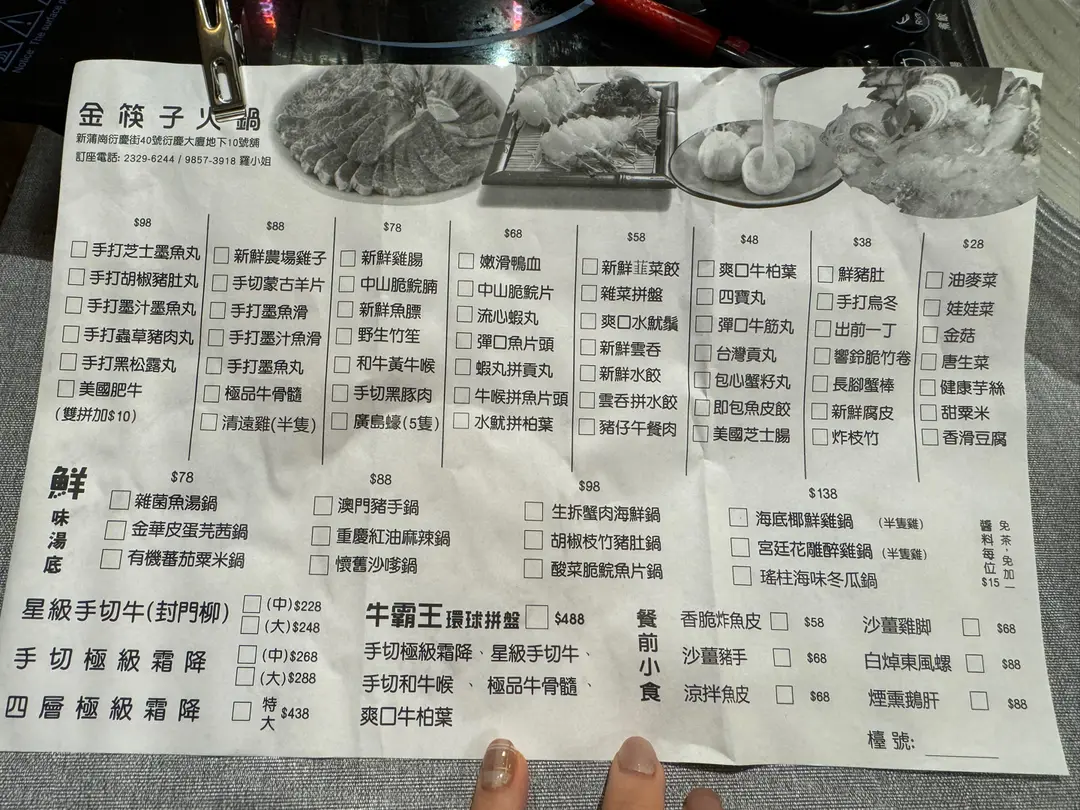 金筷子火鍋
新蒲崗衍慶街40號衍慶大廈地下10號舖
訂座電話: 2329-6244 / 9857-3918 羅小姐
$98
手打芝士墨魚丸
手打胡椒豬肚丸
手打墨汁墨魚丸
手打蟲草豬肉丸
手打黑松露丸
美國肥牛
(雙拼加$10)
$88
新鮮農場雞子
手切蒙古羊片
手打墨魚滑
手打墨汁魚滑
手打墨魚丸
極品牛骨髓
清遠雞(半隻)
$78
新鮮雞腸
中山脆鯇腩
新鮮魚膘
野生竹笙
和牛黃牛喉
手切黑豚肉
廣島蠔(5隻)
$68
嫩滑鴨血
中山脆鯇片
流心蝦丸
彈口魚片頭
蝦丸拼貢丸
牛喉拼魚片頭
水魷拼柏葉
$58
新鮮韮菜餃
雜菜拼盤
爽口水魷鬚
新鮮雲吞
新鮮水餃
雲吞拼水餃
豬仔午餐肉
$48
爽口牛柏葉
四寶丸
彈口牛筋丸
台灣貢丸
包心蟹籽丸
即包魚皮餃
美國芝士腸
$38
鮮豬肚
手打烏冬
出前一丁
響鈴脆竹卷
長腳蟹棒
新鮮腐皮
炸枝竹
$28
油麥菜
娃娃菜
金菇
唐生菜
健康芋絲
甜粟米
香滑豆腐
鮮味湯底
$78
雜菌魚湯鍋
金華皮蛋芫茜鍋
有機蕃茄粟米鍋
$88
澳門豬手鍋
重慶紅油麻辣鍋
懷舊沙嗲鍋
$98
生拆蟹肉海鮮鍋
胡椒枝竹豬肚鍋
酸菜脆鯇魚片鍋
$138
海底椰鮮雞鍋 (半隻雞)
宮廷花雕醉雞鍋 (半隻雞)
瑤柱海味冬瓜鍋
免茶，免加一
醬料每位$15
星級手切牛(封門柳) (中)$228
(大)$248
手切極級霜降 (中)$268
(大)$288
四層極級霜降 特大 $438
牛霸王環球拼盤 $488
手切極級霜降、星級手切牛、
手切和牛喉、極品牛骨髓、
爽口牛柏葉
餐前小食
香脆炸魚皮 $58
沙薑豬手 $68
涼拌魚皮 $68
沙薑雞脚 $68
白焯東風螺 $88
煙熏鵝肝 $88
檯號: